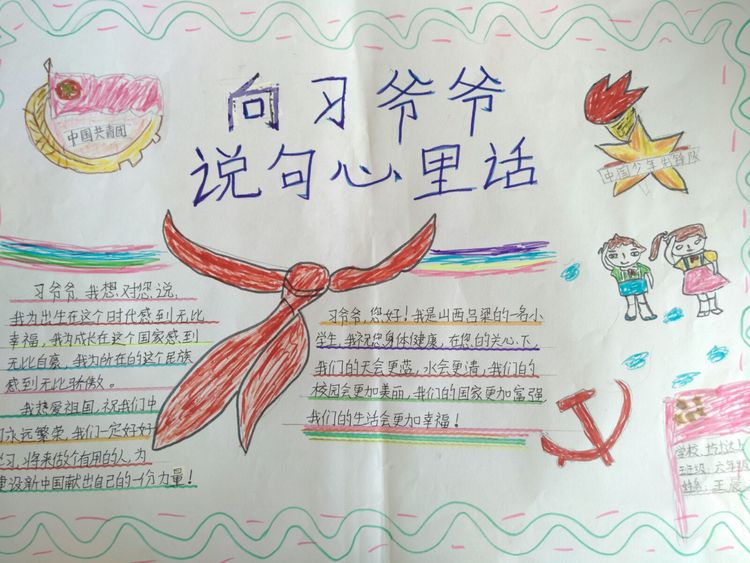 向习爷爷
说句心里话
中国共青团
中国少年先锋队
习爷爷,我想对您说,
我为出生在这个时代感到无比
幸福,我为成长在这个国家感到
无比自豪,我为所在的这个民族
感到无比骄傲。
我热爱祖国,祝我们中
永远繁荣,我们一定好好
学习,将来做个有用的人,为
建设新中国献出自己的一份力量!
习爷爷,您好!我是山西吕梁的一名小
学生,我祝您身体健康,在您的关心下,
我们的天会更蓝,水会更清,我们的
校园会更加美丽,我们的国家更加富强
我们的生活会更加幸福!
学校:
班级:六年
姓名:王